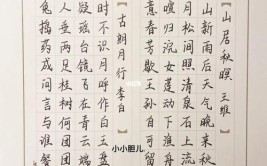 山居秋暝 王维
山新雨后天气晚来秋
月松间照清泉石上流
喧归浣女莲动下渔舟
意春芳歇王孙自可留
古朗月行 李白
时不识月呼作白玉盘
疑瑶台镜飞在青云端
人垂两足桂树何团团
兔捣药成问言与谁餐
小小胆儿